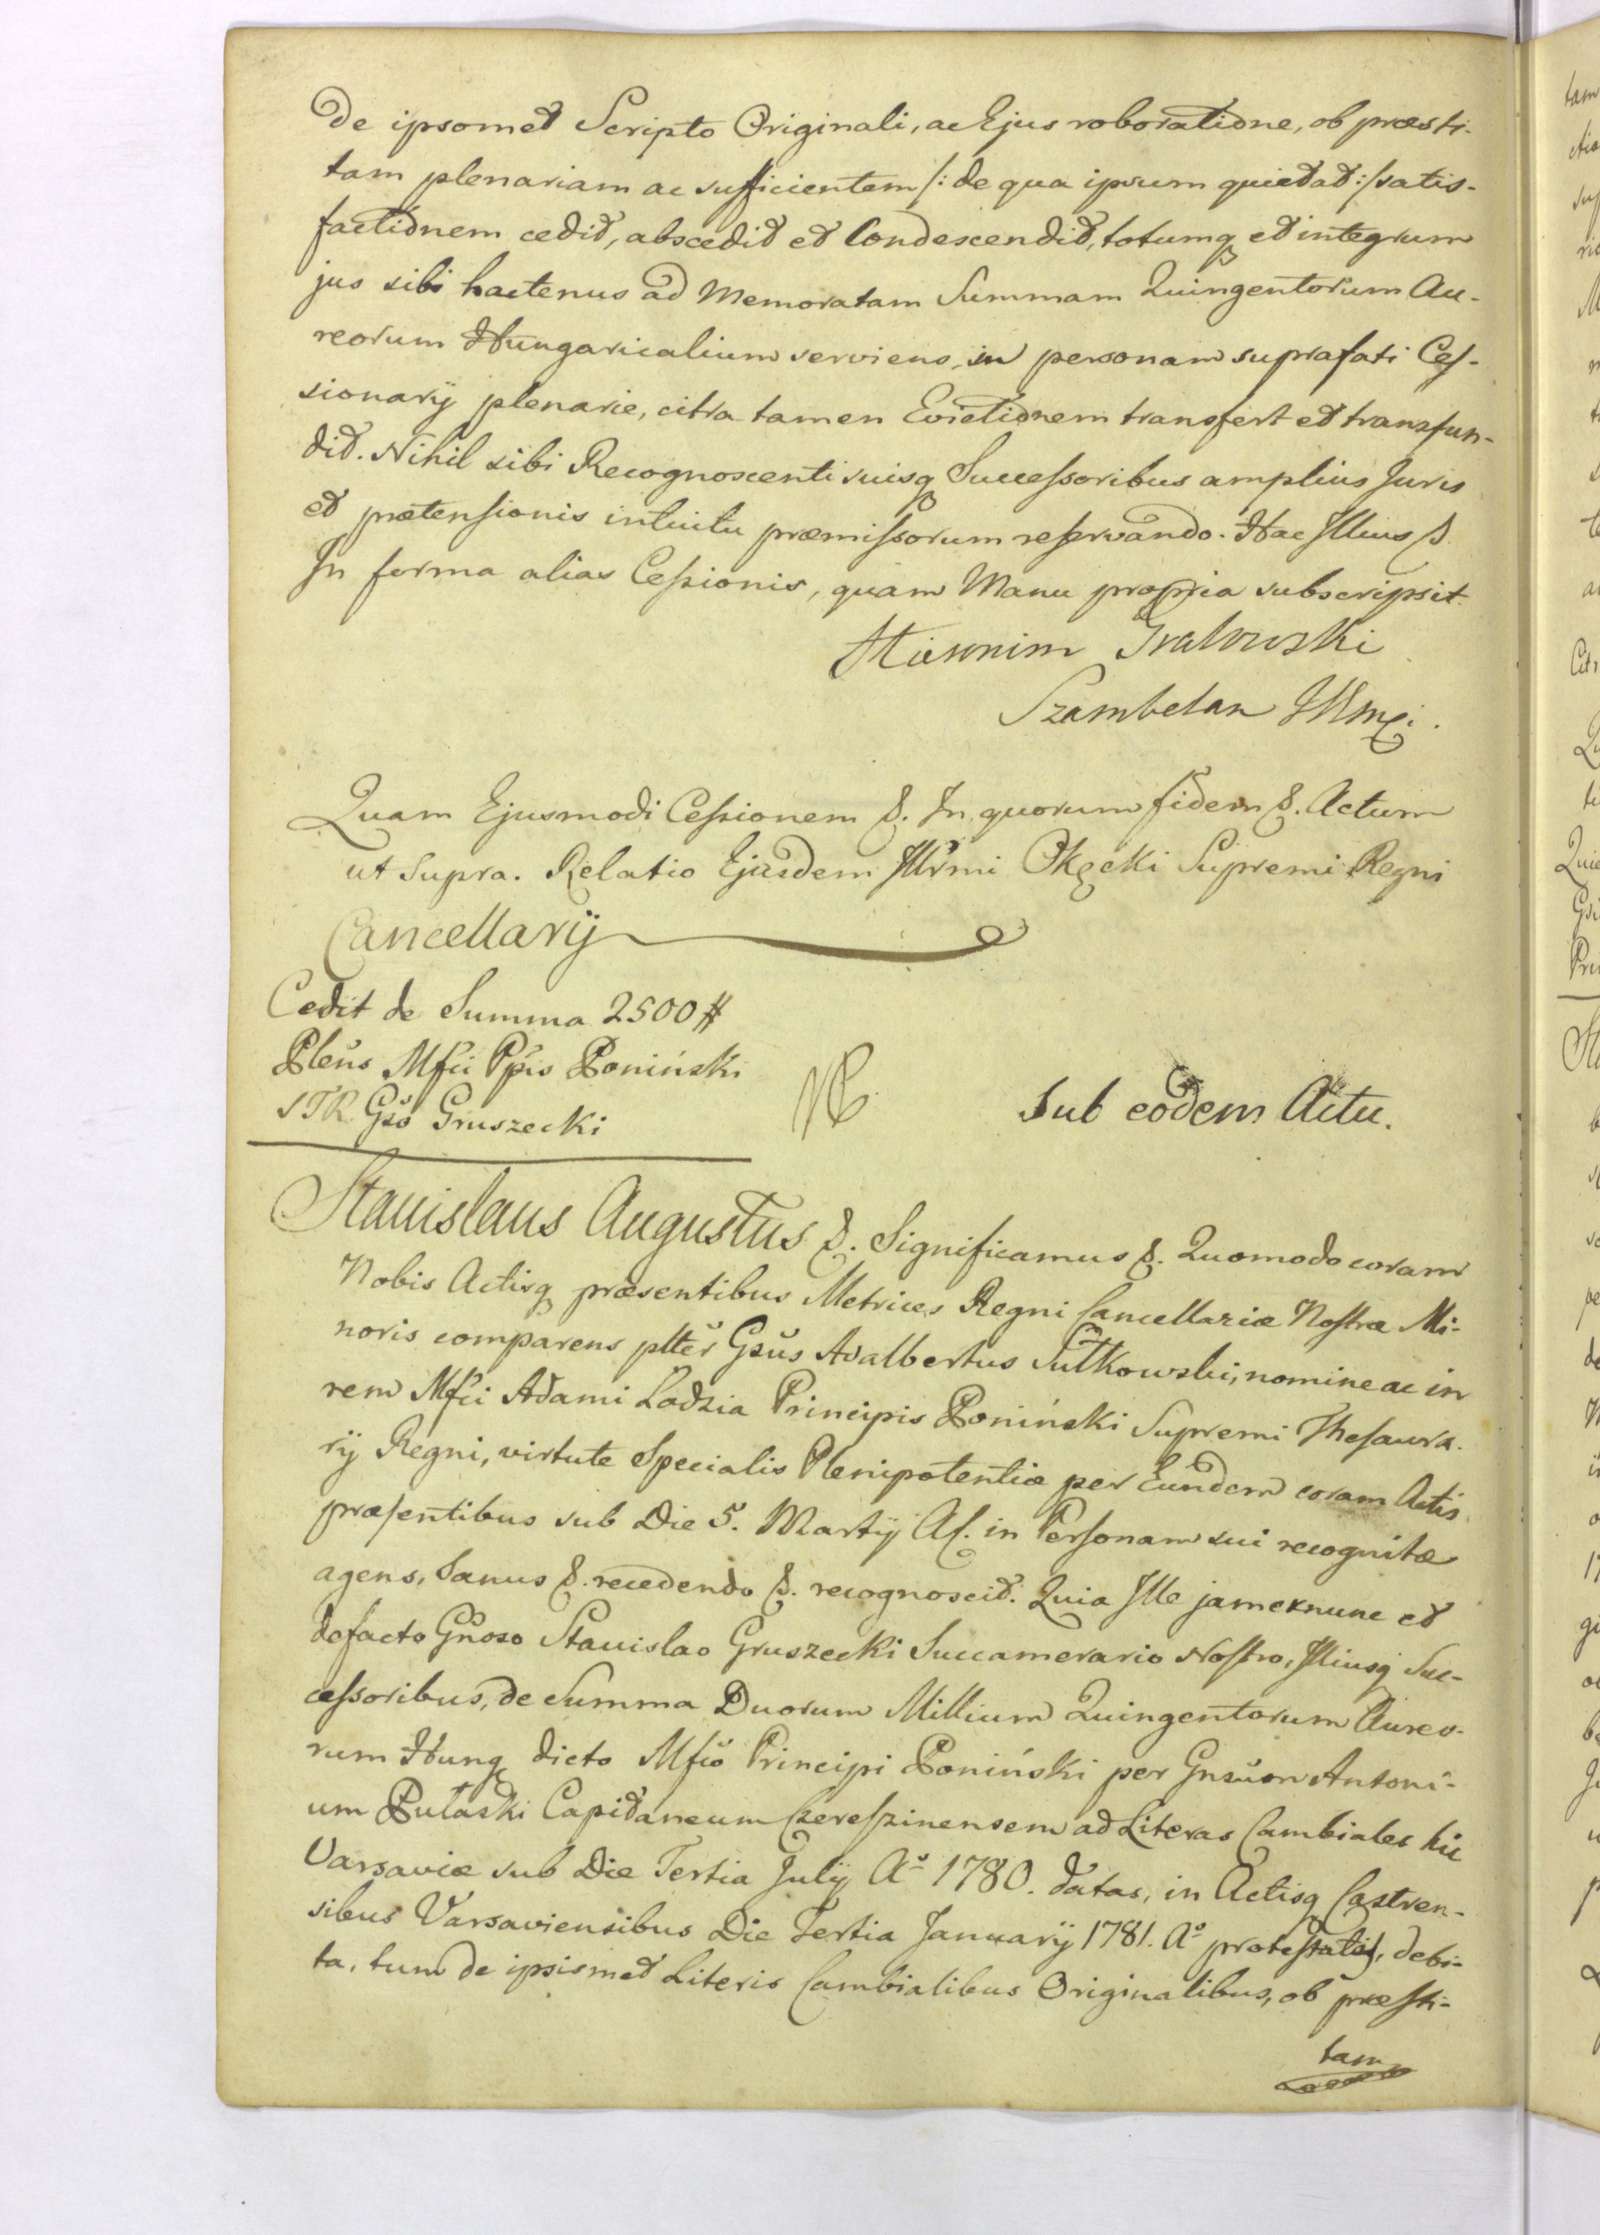 De ipsomet Scripto Originali, ac Ejus roboratione, ob præsti-
tam plenariam ac sufficientem /: de qua ipsum quietat :/ satis-
factionem cedit, abscedit et Condescendit, totumq et integrum
jus sibi hactenus ad Memoratam Summam Quingentorum Au-
reorum Hungaricalium serviens, in personam suprafati Ces-
sionarij plenarie, citra tamen Evictionem transfert et transfun-
dit. Nihil sibi Recognoscenti suisq Successoribus amplius Juris
et prætensionis intuitu præmissorum reservando. Hac Illius &
In forma alias Cessionis, quam Manu propria subscripsit
Hieronim Grabowski
Szambelan JKMci.
Quam Ejusmodi Cessionem &. In quorum fidem &. Actum
ut supra. Relatio Ejusdem Illrmi Okęcki Supremi Regni
Cancellarij
Cedit de Summa 2500 #
Pleñs Mfci Ppis Poniński
STR Gso Gruszecki
Sub eodem Actu.
Stanislaus Augustus &. Significamus &. Quomodo coram
Nobis Actisq præsentibus Metrices Regni Cancellariæ Nostræ Mi-
noris comparens plter Gsus Adalbertus Sutkowski, nomine ac in
rem Mfci Adami Lodzia Principis Poniński Supremi Thesaura-
rij Regni, virtute Specialis Plenipotentiæ per Eundem coram Actis
præsentibus sub Die 5. Martij Af. in Personam sui recognitæ
agens, Sanus &. recedendo &. recognoscit. Quia Ille jamexnunc et
defacto Gnoso Stanislao Gruszecki Succamerario Nostro, Illiusq Suc-
cessoribus, de Summa Duorum Millium Quingentorum Aureo-
rum Hung dicto Mfco Principi Poniński per Gnsum Antoni-
um Pułaski Capitaneum Czereszinensem ad Literas Cambiales hic
Varsaviæ sub Die Tertia Julij Aº 1780. datas, in Actisq Castren-
sibus Varsaviensibus Die Tertia Januarij 1781. Aº protestatas, debi-
ta, tum de ipsismet Literis Cambialibus Originalibus, ob præsti-
tam